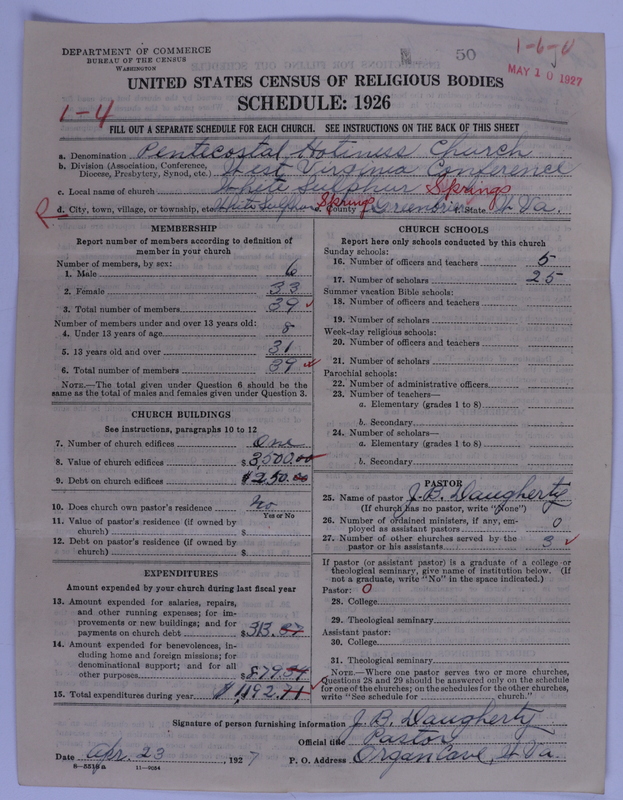 DEPARTMENT OF COMMERCE
BUREAU OF THE CENSUS
WASHINGTON
50
1-6-0
MAY 10 1927
UNITED STATES CENSUS OF RELIGIOUS BODIES
SCHEDULE: 1926
1-4
FILL OUT A SEPARATE SCHEDULE FOR EACH CHURCH. SEE INSTRUCTIONS ON THE BACK OF THIS SHEET
a. Denomination Pentecostal Holiness Church
b. Division (Association, Conference, Diocese, Presbytery, Synod, etc.) West Virginia Conference
c. Local name of church White Sulphur Springs
d. City, town, village, or township, etc. White Sulphur Spring e. County Greenbrier State W Va.
MEMBERSHIP
Report number of members according to definition of
member in your church
Number of members, by sex:
1. Male 6
2. Female 33
3. Total number of members 39
Number of members under and over 13 years old:
4. Under 13 years of age 8
5. 13 years old and over 31
6. Total number of members 39
NOTE.—The total given under Question 6 should be the
same as the total of males and females given under Question 3.
CHURCH BUILDINGS
See instructions, paragraphs 10 to 12
7. Number of church edifices One
8. Value of church edifices $3,500.00
9. Debt on church edifices $250.00
10. Does church own pastor's residence No
Yes or No
11. Value of pastor's residence (if owned by
church) $
12. Debt on pastor's residence (if owned by
church) $
EXPENDITURES
Amount expended by your church during last fiscal year
13. Amount expended for salaries, repairs,
and other running expenses; for im-
provements or new buildings; and for
payments on church debt $313.37
14. Amount expended for benevolences, in-
cluding home and foreign missions; for
denominational support; and for all
other purposes $879.34
15. Total expenditures during year $1,192.71
CHURCH SCHOOLS
Report here only schools conducted by this church
Sunday schools:
16. Number of officers and teachers 5
17. Number of scholars 25
Summer vacation Bible schools:
18. Number of officers and teachers
19. Number of scholars
Week-day religious schools:
20. Number of officers and teachers
21. Number of scholars
Parochial schools:
22. Number of administrative officers
23. Number of teachers—
a. Elementary (grades 1 to 8)
b. Secondary
24. Number of scholars—
a. Elementary (grades 1 to 8)
b. Secondary
PASTOR
25. Name of pastor J. B. Daugherty
(If church has no pastor, write "None")
26. Number of ordained ministers, if any, em-
ployed as assistant pastors 0
27. Number of other churches served by the
pastor or his assistants 3
If pastor (or assistant pastor) is a graduate of a college or
theological seminary, give name of institution below. (If
not a graduate, write "No" in the space indicated.)
Pastor: 0
28. College
29. Theological seminary
Assistant pastor:
30. College
31. Theological seminary
NOTE.—Where one pastor serves two or more churches,
Questions 28 and 29 should be answered only on the schedule
for one of the churches; on the schedules for the other churches,
write "See schedule for church."
Signature of person furnishing information J. B. Daugherty
Official title Pastor
Date Apr. 23, 1927 P. O. Address Organ Cave, W Va.
8-5518a 11-9054